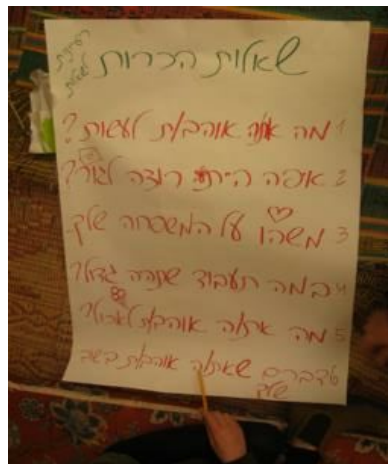 שאלות הכרות
1 מה את/ה אוהב/ת לעשות?
2 איפה היית רוצה לגור?
3 משהו על המשפחה שלך
4 במה תעבוד שתהיה גדול?
5 מה את/ה אוהב/ת לאכול?
דברים שאת/ה אוהב/ת בשב